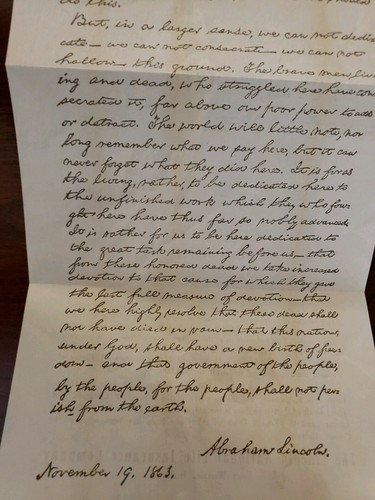 do this.
But, in a larger sense, we can not dedi-
cate — we can not consecrate — we can not
hallow — this ground. The brave men, liv-
ing and dead, who struggled here have con-
secrated it, far above our poor power to add
or detract. The world will little note, nor
long remember what we say here, but it can
never forget what they did here. It is for us
the living, rather, to be dedicated here to
the unfinished work which they who fou-
ght here have thus far so nobly advanced.
It is rather for us to be here dedicated to
the great task remaining before us — that
from these honored dead we take increased
devotion to that cause for which they gave
the last full measure of devotion — that
we here highly resolve that these dead shall
not have died in vain — that this nation,
under God, shall have a new birth of free-
dom — and that government of the people,
by the people, for the people, shall not per-
ish from the earth.
Abraham Lincoln.
November 19, 1863.